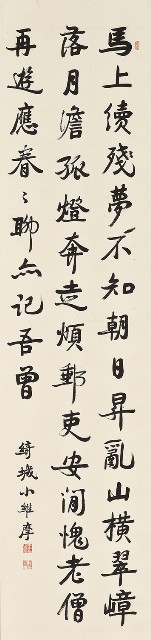 馬上續殘夢不知朝日昇亂山橫翠嶂
落月澹孤燈奔走煩郵吏安閒愧老僧
再遊應眷〻聊亦記吾曾
城小維摩